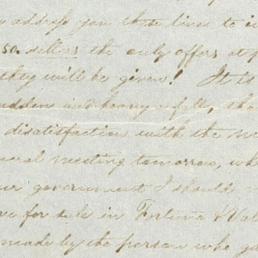 address you these lines to i
so sellers the only offers at p
they will be given! It is
sudden and heavy a fall, tha
disatisfaction with the m
eral meeting tomorrow, wh
our government I should
ve for sale in Fortuna & Val
made by the person who g